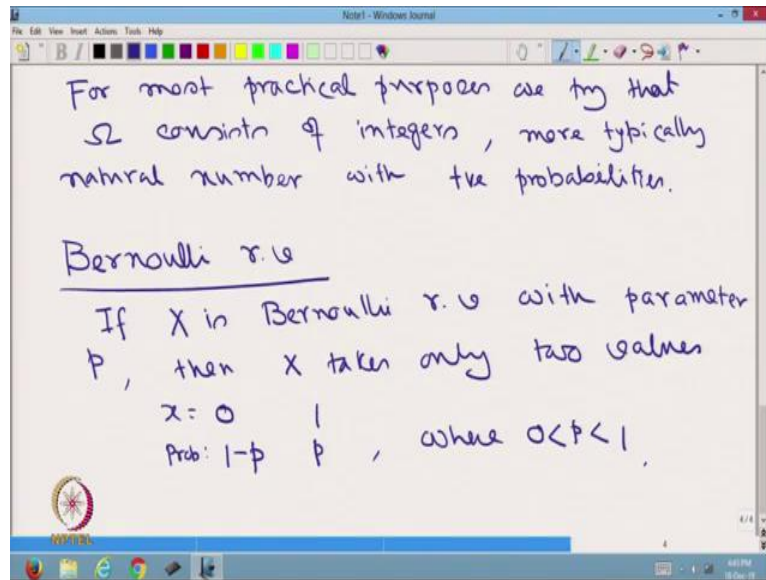 Note1 - Windows Journal
File Edit View Insert Actions Tools Help
For most practical purposes we try that
Ω consists of integers, more typically
natural number with +ve probabilities.
Bernoulli r.v
If X is Bernoulli r.v with parameter
p, then X takes only two values
x = 0 1
Prob: 1-p p , where 0<p<1,
NPTEL
4/4
4
4:45 PM